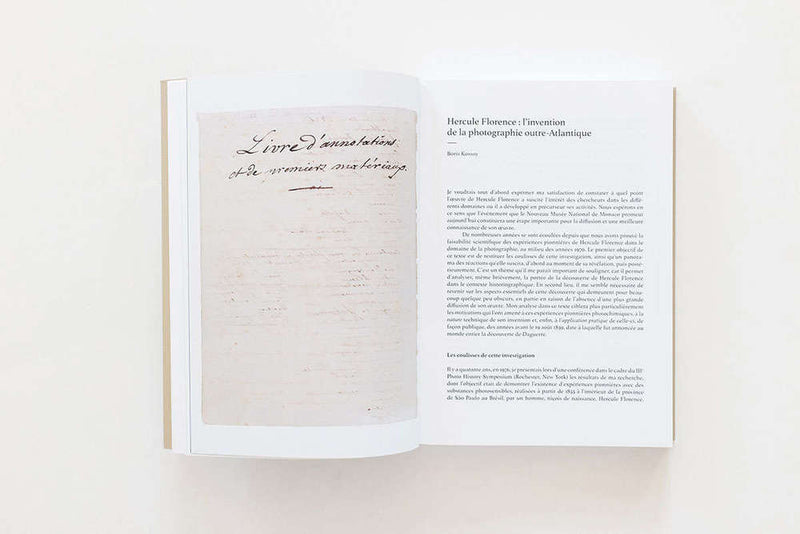 Livre d'annotations
et de premiers matériaux.
Hercule Florence : l'invention
de la photographie outre-Atlantique
Boris Kossoy
Je voudrais tout d'abord exprimer ma satisfaction de constater à quel point
l'œuvre de Hercule Florence a suscité l'intérêt des chercheurs dans les diffé-
rents domaines où il a développé en précurseur ses activités. Nous espérons en
ce sens que l'événement que le Nouveau Musée National de Monaco promeut
aujourd'hui constituera une étape importante pour la diffusion et une meilleure
connaissance de son œuvre.
De nombreuses années se sont écoulées depuis que nous avons prouvé la
faisabilité scientifique des expériences pionnières de Hercule Florence dans le
domaine de la photographie, au milieu des années 1970. Le premier objectif de
ce texte est de restituer les coulisses de cette investigation, ainsi qu'un panora-
ma des réactions qu'elle suscita, d'abord au moment de sa révélation, puis posté-
rieurement. C'est un thème qu'il me paraît important de souligner, car il permet
d'analyser, même brièvement, la portée de la découverte de Hercule Florence
dans le contexte historiographique. En second lieu, il me semble nécessaire de
revenir sur les aspects essentiels de cette découverte qui demeurent pour beau-
coup quelque peu obscurs, en partie en raison de l'absence d'une plus grande
diffusion de son œuvre. Mon analyse dans ce texte ciblera plus particulièrement
les motivations qui l'ont amené à ces expériences pionnières photochimiques, à la
nature technique de son invention et, enfin, à l'application pratique de celle-ci, de
façon publique, des années avant le 19 août 1839, date à laquelle fut annoncée au
monde entier la découverte de Daguerre.
Les coulisses de cette investigation
Il y a quarante ans, en 1976, je présentais lors d'une conférence dans le cadre du III
Photo History Symposium (Rochester, New York) les résultats de ma recherche,
dont l'objectif était de démontrer l'existence d'expériences pionnières avec des
substances photosensibles, réalisées à partir de 1833 à l'intérieur de la province
de São Paulo au Brésil, par un homme, niçois de naissance, Hercule Florence,